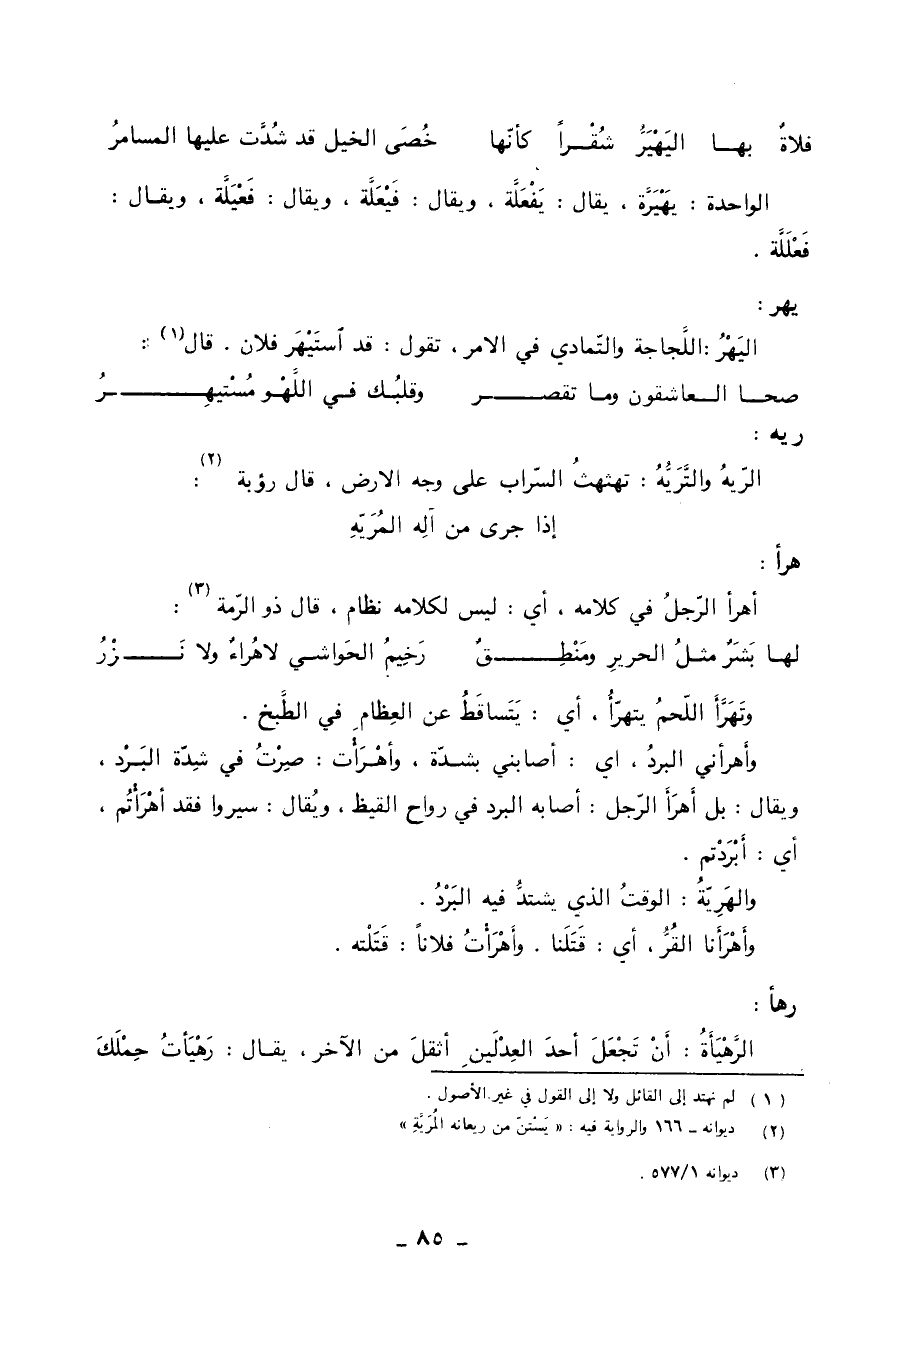 فلاةٌ بها اليَهْيَرُّ شُقْراً كأنّها خُصَى الخيل قد شُدَّت عليها المسامرُ
الواحدة : يَهْيَرَّة ، يقال : يَفْعَلَّة ، ويقال : فَيْعَلَّة ، ويقال : فَعْيَلَّة ، ويقال :
فَعْلَلَّة .
يهر :
اليَهْرُ :اللَّجاجة والتّمادي في الامر ، تقول : قد ٱستَيْهَر فلان . قال(١) :
صحا العاشقون وما تقصر وقلبُك في اللَّهْو مُسْتيهِرُ
ريه :
الرّيهُ والتَّرَيُّهُ : تهثهثُ السّراب على وجه الارض ، قال رؤبة (٢) :
إذا جرى من آلِه المُرَيّهِ
هرأ :
أهرأ الرّجلُ في كلامه ، أي : ليس لكلامه نظام ، قال ذو الرّمة (٣) :
لها بَشَرٌ مثلُ الحريرِ ومَنْطِقٌ رَخِيمُ الحَواشي لاهُراءٌ ولا نَزْرُ
وتَهَرَّأَ اللّحمُ يتهرّأُ ، أي : يَتَساقَطُ عن العِظامِ في الطَّبخ .
وأهرأني البردُ ، اي : أصابني بشدّة ، وأهْرَأْت : صِرْتُ في شِدّة البَرْد ،
ويقال : بل أَهرَأَ الرّجل : أصابه البرد في رواح القيظ ، ويُقال : سيروا فقد أهْرَأْتُم ،
أي : أَبْرَدْتم .
والهَرِيّةُ : الوقتُ الذي يشتدُّ فيه البَرْدُ .
وأهْرَأنا القُرُّ ، أي : قَتَلَنا . وأهْرَأْتُ فلاناً : قَتَلْته .
رهأ :
الرَّهْيَأَةُ : أنْ تَجْعَلَ أحدَ العِدْلَينِ أثقلَ من الآخر ، يقال : رَهْيَأتُ حِمْلَكَ
(١) لم نهتد إلى القائل ولا إلى القول في غير الأصول .
(٢) ديوانه ـ ١٦٦ والرواية فيه : « يَسْتنّ من ريعانه المُرَيَّةِ »
(٣) ديوانه ٥٧٧/١ .
ـ ٨٥ ـ